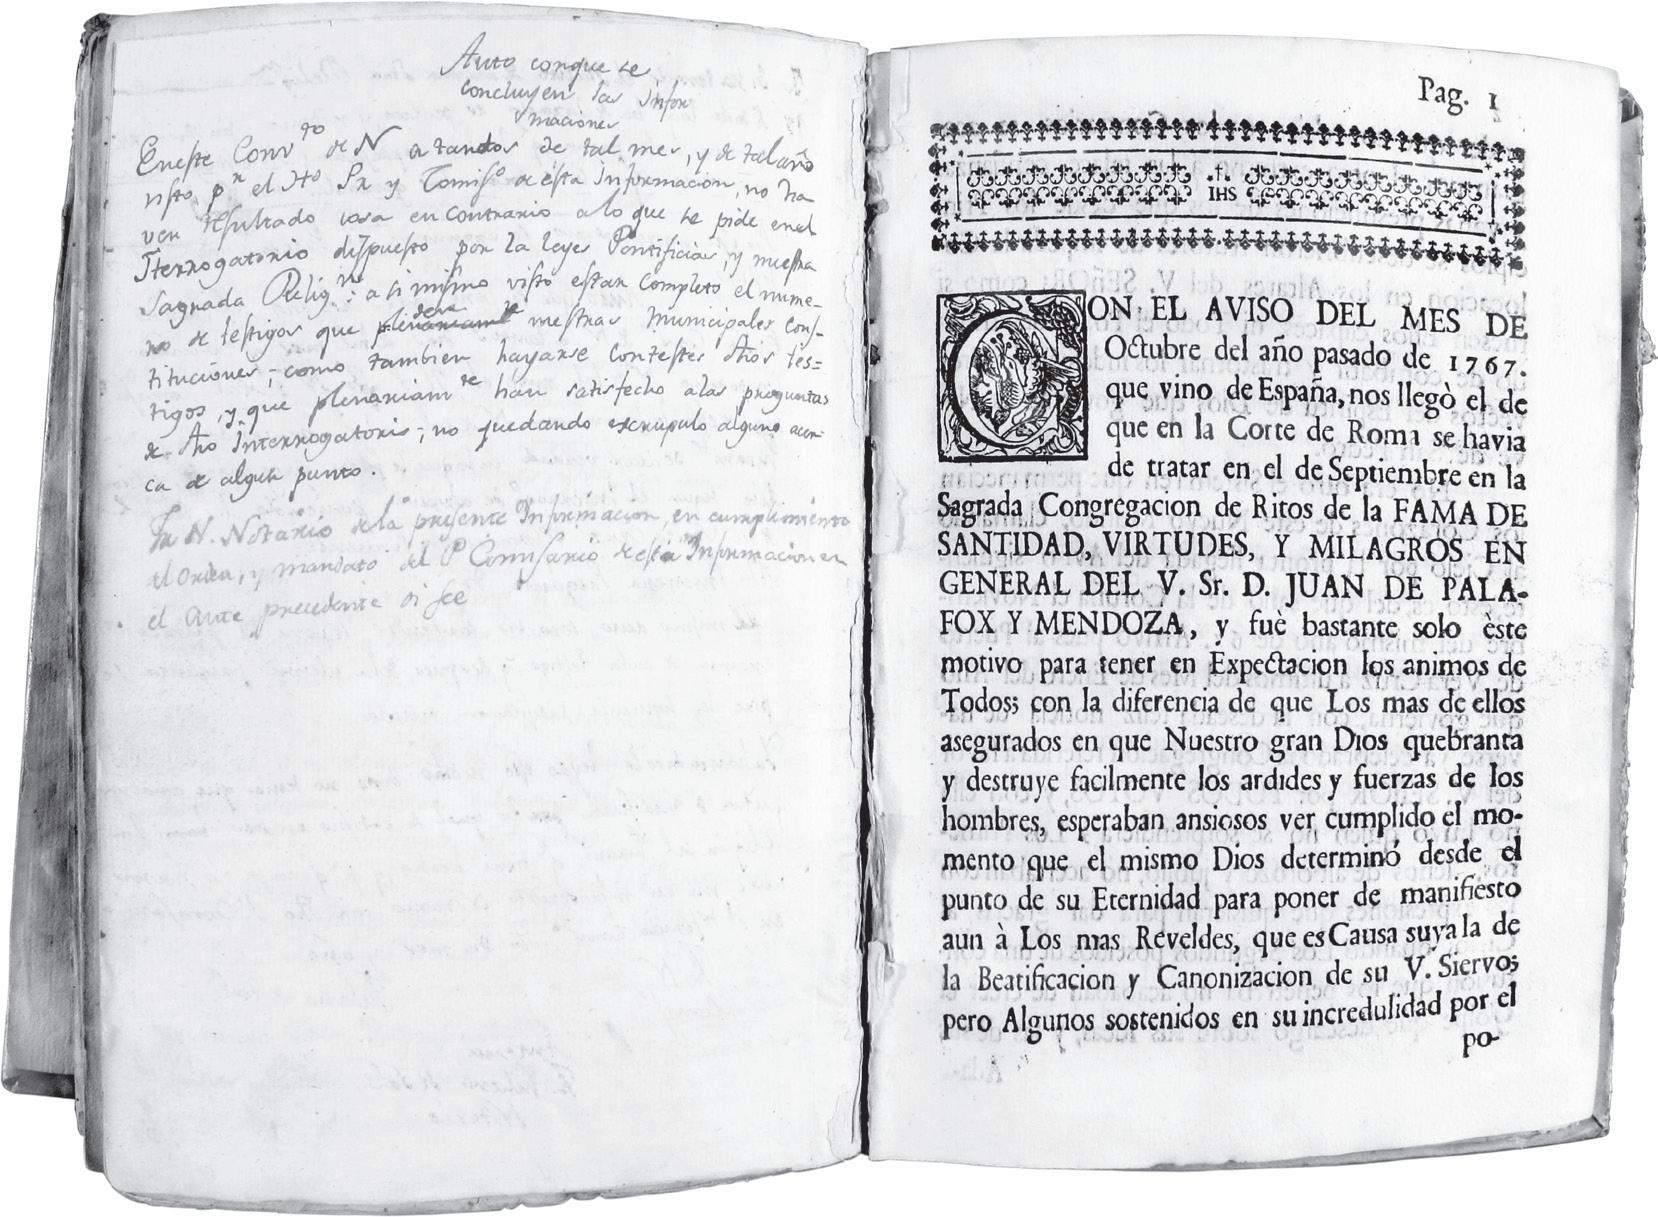 Auto conque se
concluyen las infor
maciones
Eneste Conv.to de N a tantos de tal mes, y de tal año
visto p.r el Ho Pr y Comis.o de esta Informacion, no ha
ver resultado cosa en contrario a lo que se pide en el
Iterrogatorio dispuesto por la leyes Pontificias, y nuestra
Sagrada Relig.n: a si mismo visto estar completo el nume-
ro de testigos que nuestras Municipales cons-
tituciones; como tambien hayarse contestes dhos tes=
tigos, y que plenariam.te han satisfecho a las preguntas
de dho Interrogatorio; no quedando escrupulo alguno acer-
ca de algun punto.
Fr N. Notario de la presente Informacion, en cumplimiento
del orden, y mandato del P Comisario de esta Informacion en
el Auto precedente di fee
Pag. 1
IHS
CON EL AVISO DEL MES DE
Octubre del año pasado de 1767.
que vino de España, nos llegò el de
que en la Corte de Roma se havia
de tratar en el de Septiembre en la
Sagrada Congregacion de Ritos de la FAMA DE
SANTIDAD, VIRTUDES, Y MILAGROS EN
GENERAL DEL V. Sr. D. JUAN DE PALA-
FOX Y MENDOZA, y fuè bastante solo èste
motivo para tener en Expectacion los animos de
Todos; con la diferencia de que Los mas de ellos
asegurados en que Nuestro gran Dios quebranta
y destruye facilmente los ardides y fuerzas de los
hombres, esperaban ansiosos ver cumplido el mo-
mento que el mismo Dios determinó desde el
punto de su Eternidad para poner de manifiesto
aun à Los mas Reveldes, que es Causa suya la de
la Beatificacion y Canonizacion de su V. Siervo;
pero Algunos sostenidos en su incredulidad por el
po-